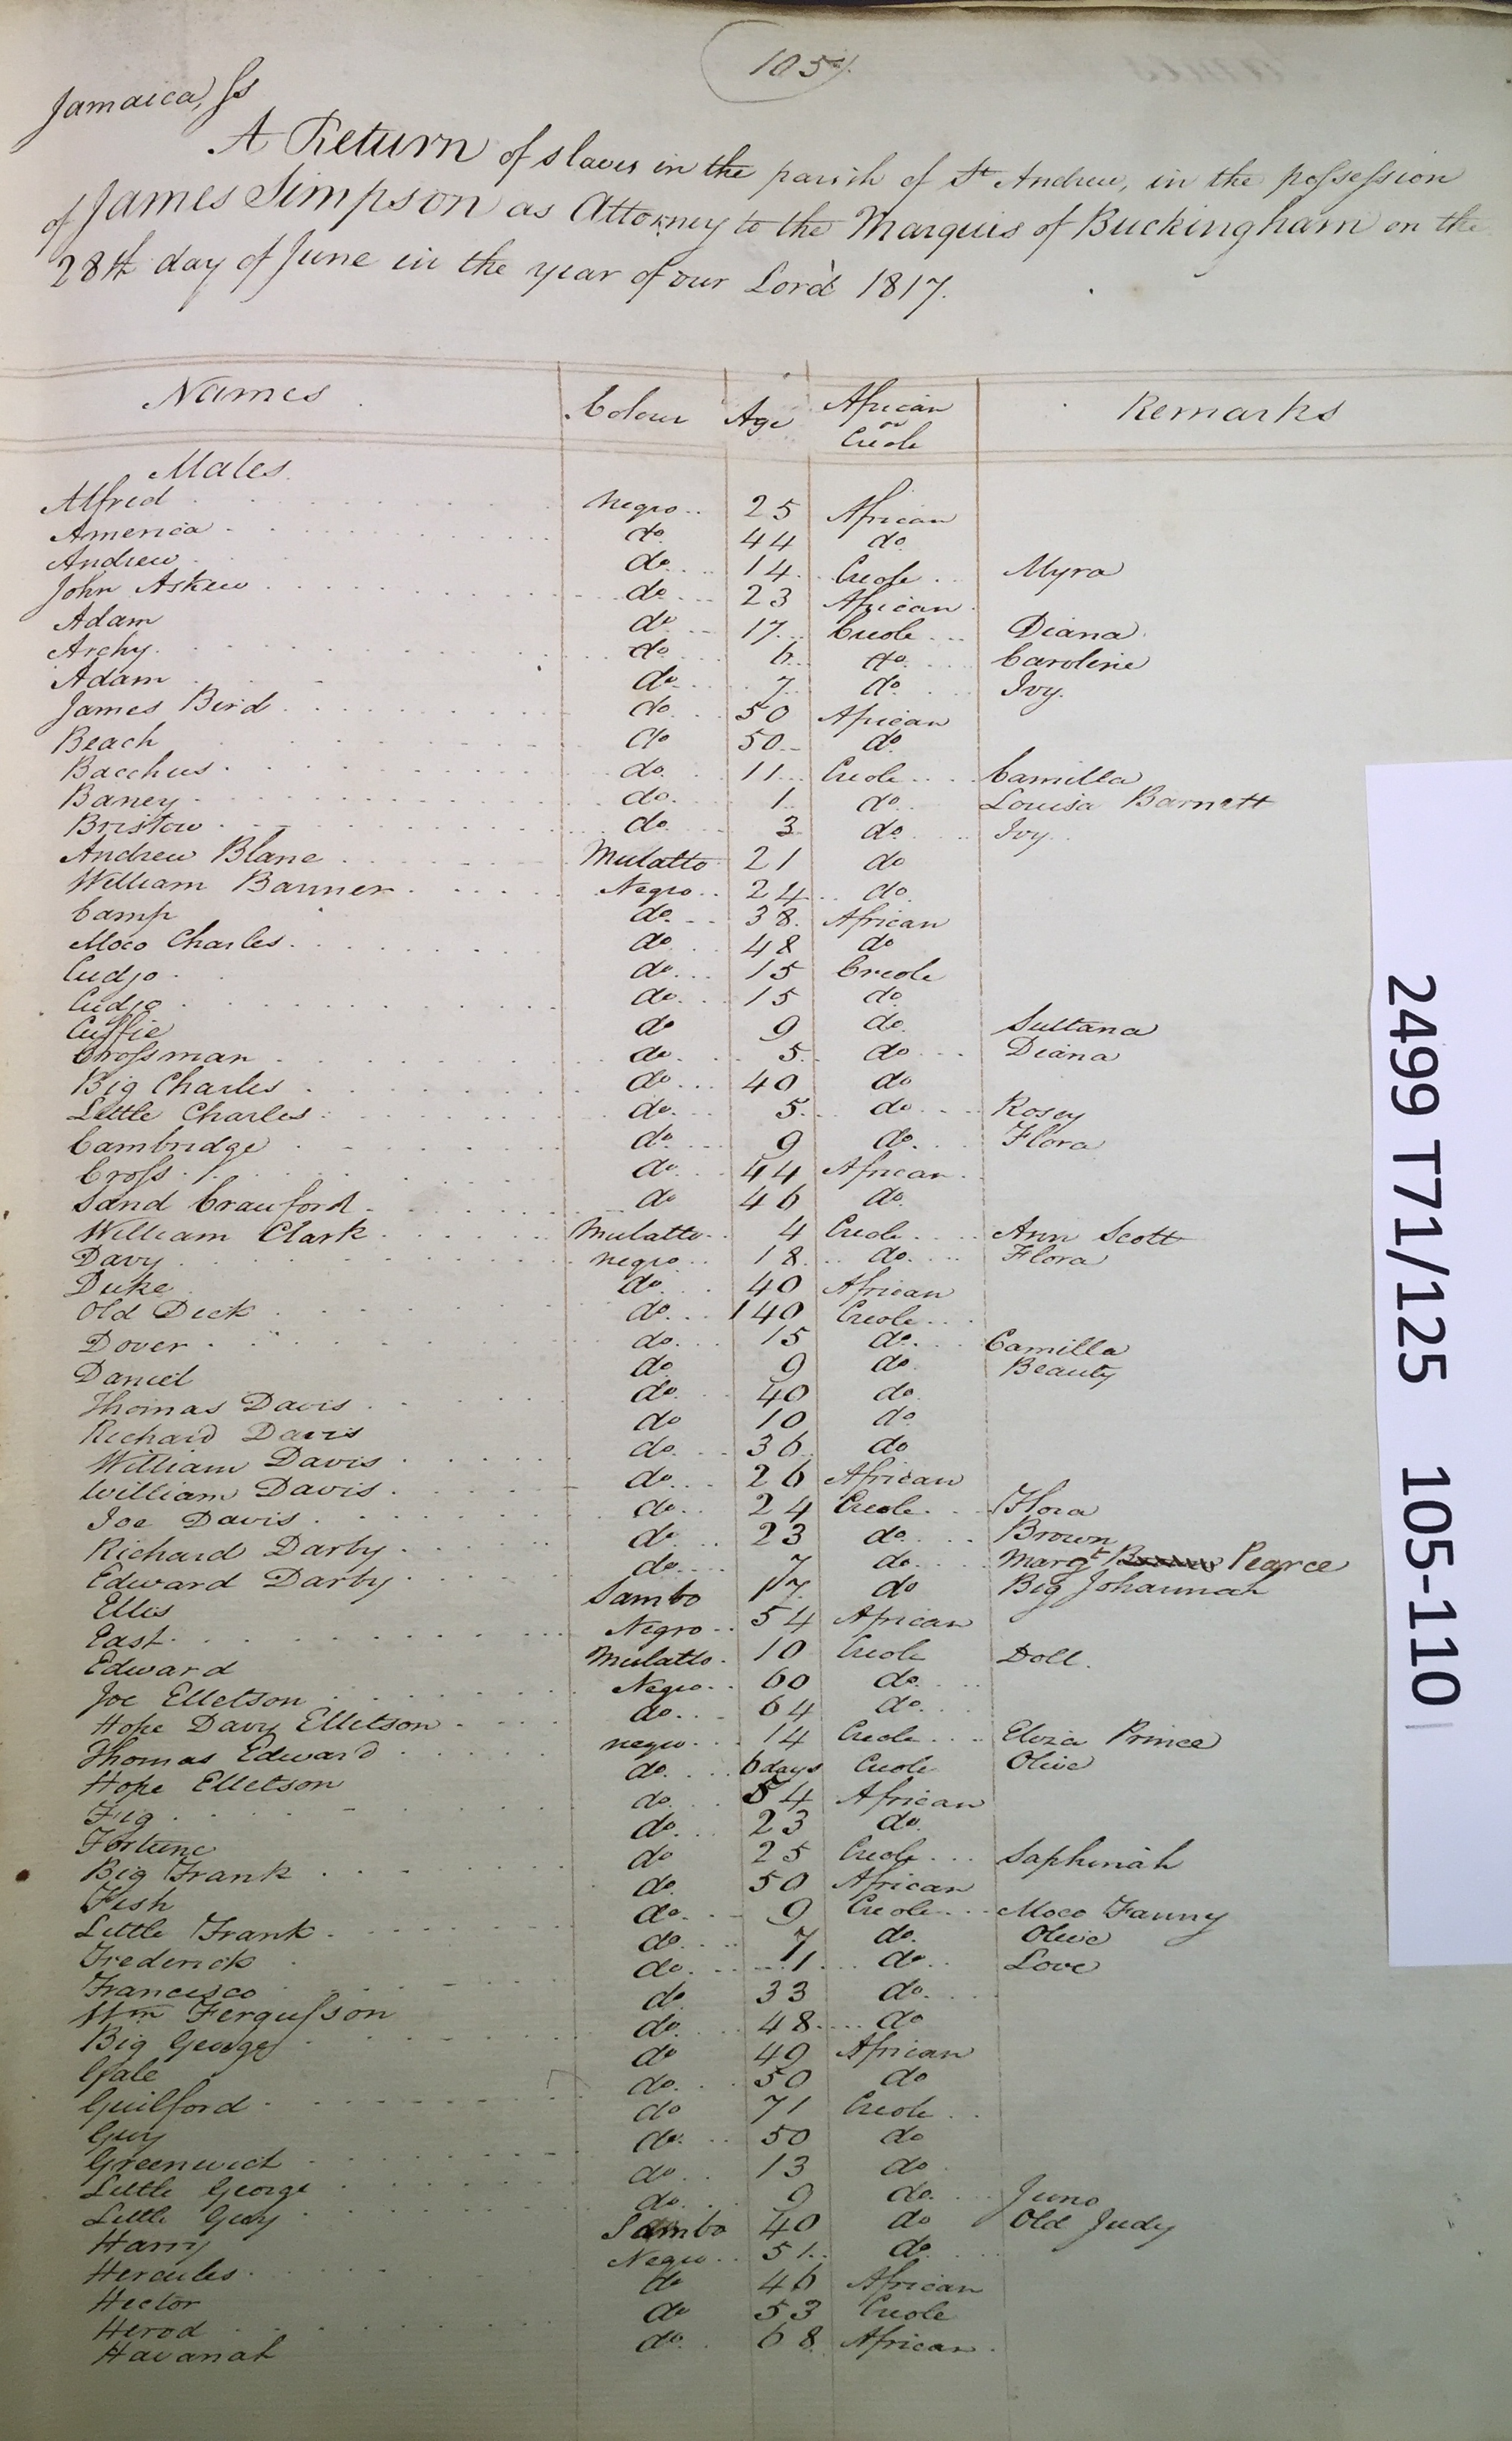 105
Jamaica, Ss
A Return of slaves in the parish of St Andrew, in the possession
of James Simpson as Attorney to the Marquis of Buckingham on the
28th day of June in the year of our Lord 1817.
Names Colour Age African or Creole Remarks
Males
Alfred Negro 25 African
America do 44 do
Andrew do 14 Creole Myra
John Askew do 23 African
Adam do 17 Creole Diana
Archy do 6 do Caroline
Adam do 7 do Ivy
James Bird do 50 African
Beach do 50 do
Bacchus do 11 Creole Camilla
Baney do 1 do Louisa Barnett
Bristow do 3 do Ivy
Andrew Blane Mulatto 21 do
William Banner Negro 24 do
Camp do 38 African
Moco Charles do 48 do
Cudjo do 15 Creole
Cudjo do 15 do
Cuffie do 9 do Sultana
Crossman do 5 do Diana
Big Charles do 40 do
Little Charles do 5 do Rosey
Cambridge do 9 do Flora
Cross do 44 African
Sand Crawford do 46 do
William Clark Mulatto 4 Creole Ann Scott
Davy negro 18 do Flora
Duke do 40 African
Old Dick do 140 Creole
Dover do 15 do Camilla
Daniel do 9 do Beauty
Thomas Davis do 40 do
Richard Davis do 10 do
William Davis do 36 do
William Davis do 26 African
Joe Davis do 24 Creole Flora
Richard Darby do 23 do Brown
Edward Darby do 7 do Margt Pearce
Ellis Sambo 17 do Big Johannah
East Negro 54 African
Edward Mulatto 10 Creole Doll
Joe Elletson Negro 60 do
Hope Davy Elletson do 64 do
Thomas Edward negro 14 Creole Eliza Prince
Hope Elletson do 6 days Creole Olive
Fig do 54 African
Fortune do 23 do
Big Frank do 25 Creole Saphiriah
Fish do 50 African
Little Frank do 9 Creole Moco Fanny
Frederick do 7 do Olive
Francisco do 1 do Love
Wm Fergusson do 33 do
Big George do 48 do
Gale do 49 African
Guilford do 50 do
Guy do 71 Creole
Greenwich do 50 do
Little George do 13 do
Little Guy do 9 do Juno
Harry Sambo 40 do Old Judy
Hercules Negro 51 do
Hector do 46 African
Herod do 53 Creole
Havanah do 68 African
2499 T71/125 105-110